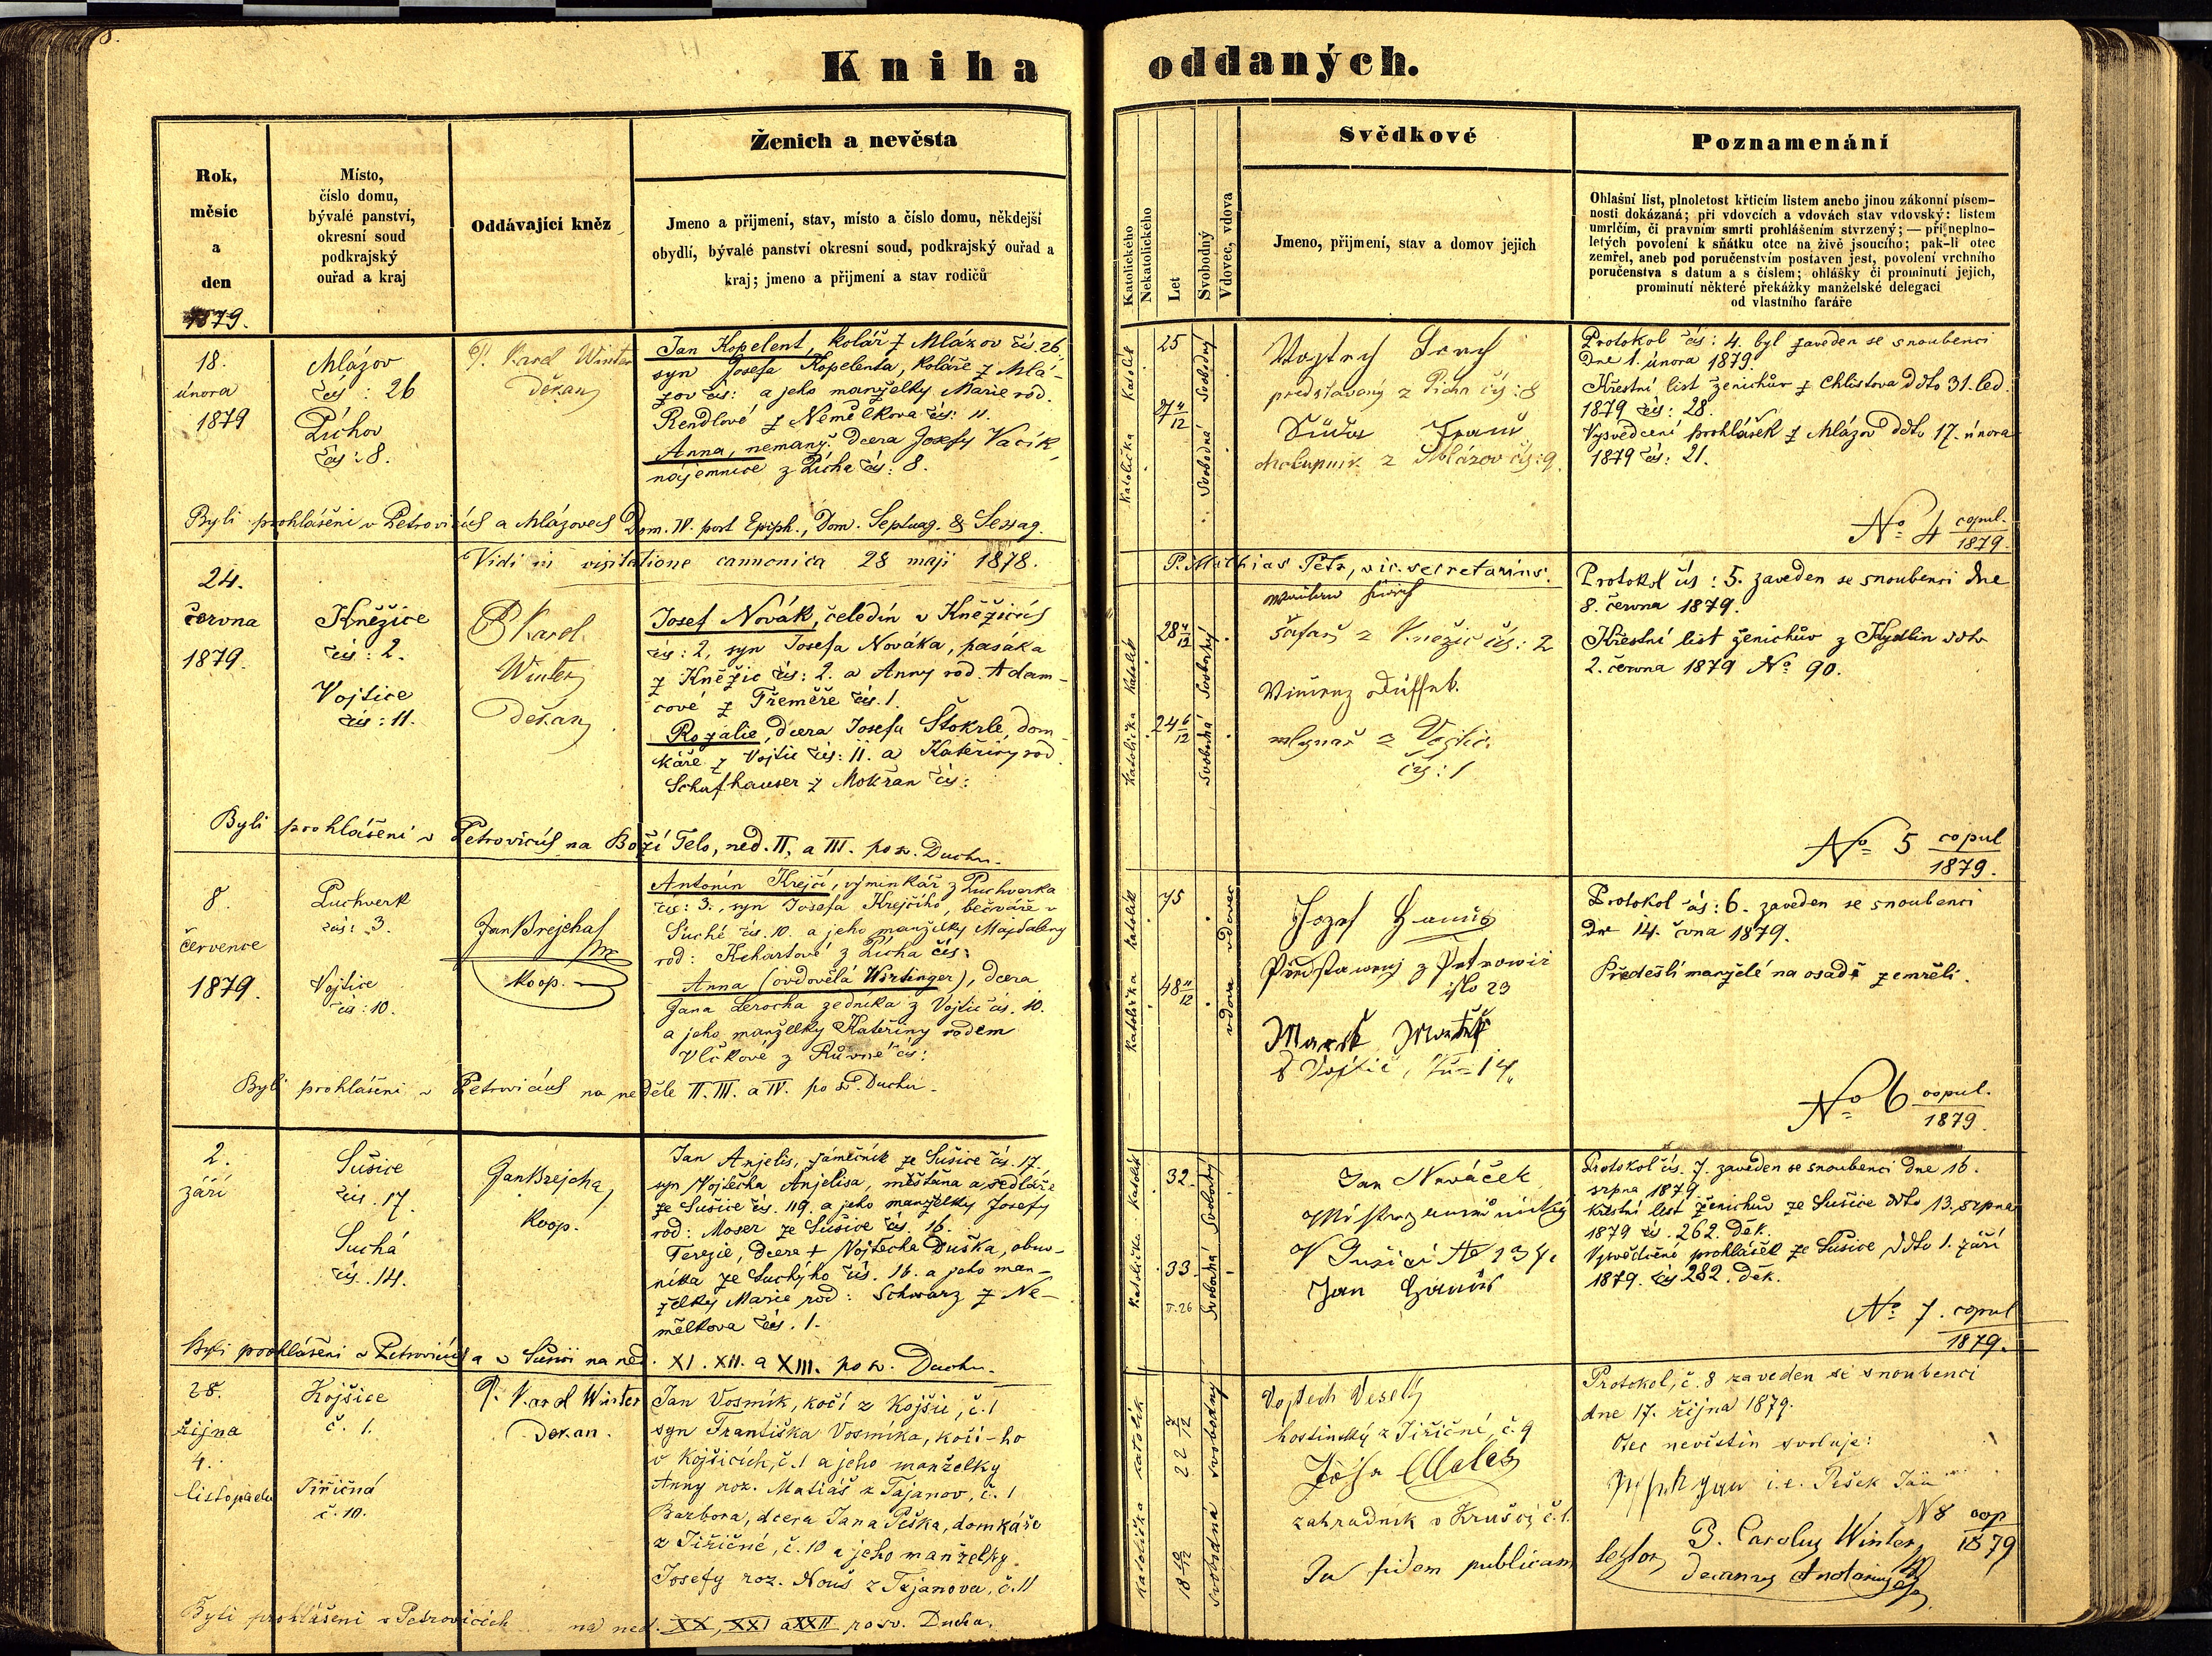 Kniha oddaných.
Rok,
měsíc
a
den
1879.
Místo,
číslo domu,
bývalé panství,
okresní soud
podkrajský
ouřad a kraj
Oddávající kněz
Ženich a nevěsta
Jmeno a přijmení, stav, místo a číslo domu, někdejší
obydlí, bývalé panství okresní soud, podkrajský ouřad a
kraj; jmeno a přijmení a stav rodičů
Katolického
Nekatolického
Let
Svobodný
Vdovec, vdova
Svědkové
Jmeno, přijmení, stav a domov jejich
Poznamenání
Ohlašní list, plnoletost křticím listem anebo jinou zákonní písem-
nosti dokázaná; při vdovcích a vdovách stav vdovský: listem
umrlčím, či pravním smrti prohlášením stvrzený; — při neplno-
letých povolení k sňátku otce na živě jsoucího; pak-li otec
zemřel, aneb pod poručenstvím postaven jest, povolení vrchního
poručenstva s datum a s číslem; ohlášky či prominutí jejich,
prominutí některé překážky manželské delegací
od vlastního faráře
18.
února
1879
Mlázov
čís: 26
Píchov
čís: 8.
P. Karel Winter
Děkan
Jan Kopelent, kolář z Mlázov čís. 26,
syn Josefa Kopelenta, koláře z Mlá-
zov čís: a jeho manželky Marie rod.
Rendlové z Němělkova čís: 11.
Anna, nemanž. dcera Josefy Vacík,
nájemnice z Pícha čís: 8.
Katolík
Katolička
25
27 11/12
Svobodný
Svobodné
Vojtěch
představený z Picha čís: 8
chalupník z Mlázov čís: 9.
Protokol čís: 4. byl zaveden se snoubenci
Dne 1. února 1879.
Křestní list ženichův z Chlistova ddto 31. led.
1879 čís: 28.
Vysvědcení prohlášek z Mlázov ddto 17. února
1879 čís: 21.
No 4 copul.
1879.
Byli prohlášeni v Petrovicích a Mlázovech Dom. IV. post Epiph., Dom. Septuag. & Sexag.
Vidi in visitatione cannonica 28 maji 1878.
P. Mathias Petr, vic. secretarius.
24.
června
1879.
Kněžice
čís: 2.
Vojtice
čís: 11.
P Karel
Winter
Děkan
Josef Novák, čeledín v Kněžicích
čís: 2, syn Josefa Nováka, pasáka
z Kněžic čís: 2. a Anny rod. Adam-
cové z Třeměře čís. 1.
Rozalie, dcera Josefa Štokrle, dom-
káře z Vojtic čís: 11. a Kateřiny rod.
Schafhauser z Mokřan čís:
Katolík
Katolička
28 4/12
24 6/12
Svobodný
Svobodná
šafař z Kněžic čís: 2
mlynař z Vojtic
čís: 1
Protokol čís: 5. zaveden se snoubenci dne
8. června 1879.
Křestní list ženichův z Kydlin ddto
2. června 1879 No 90.
No 5 copul
1879.
Byli prohlášeni v Petrovicích na Boží Telo, ned. II, a III. po sv. Duchu.
8.
července
1879.
Puchverk
čís: 3.
Vojtice
čís: 10.
Jan Brejcha
koop.
Antonín Krejčí, výminkář z Puchverka
čís: 3., syn Josefa Krejčího, bečváře v
Suché čís. 10. a jeho manželky Majdaleny
rod: Kekartové z Pícha čís:
Anna (ovdovělá Wirtinger), dcera
Jana Lerocha zedníka z Vojtic čís. 10.
a jeho manželky Kateřiny rodem
Vlčkové z Růvné čís:
katolík
katolička
45
48 11/12
vdovec
vdova
Jozef Hanuš
Představený z Petrowic
islo 23
Marek
z Vojtic, 14
Protokol čís: 6. zaveden se snoubenci
dne 14. čvna 1879.
Předešlí manželé na osadě zemřeli.
No 6 copul.
1879.
Byli prohlášeni v Petrovicích na neděle II. III. a IV. po sv. Duchu.
2.
září
Sušice
čís. 17.
Suchá
čís. 14.
Jan Brejcha,
koop.
Jan Anjelis, zámečník ze Sušice čís. 17,
syn Vojtěcha Anjelisa, měšťana a sedláře
ze Sušice čís. 119. a jeho manželky Josefy
rod: Moser ze Sušice čís. 16.
Terezie, dcera + Vojtecha Duška, obuv-
níka ze Suchýho čís. 16. a jeho man-
želky Marie rod: Schwarz z Ne-
mělkova čís. 1.
Katolík
Katolička
32
33
Svobodný
Svobodná
Jan Nováček
V Sušici
Jan Hanuš
Protokol čís. 7. zaveden se snoubenci dne 16.
srpna 1879.
Křestní list ženichův ze Sušice ddto 13. srpna
1879 čís. 262. děk.
Vysvědčení prohlášek ze Sušice ddto 1. září
1879. čís 282. děk.
No 7. copul
1879.
Byli prohlášeni v Petrovicích a v Sušici na ned. XI. XII. a XIII. po sv. Duchu.
28.
října
4.
listopadu
Kojšice
č. 1.
Jiřičná
č. 10.
P. Karel Winter
Děkan.
Jan Vosmík, kočí z Kojšic, č. 1
syn Františka Vosmíka, kočí-ho
v Kojšicích, č. 1 a jeho manželky
Anny roz. Matiáš z Tajanov, č. 1
Barbora, dcera Jana Peška, domkáře
z Jiřičné, č. 10 a jeho manželky
Josefy roz. Nouš z Tajanova, č. 11
katolík
katolička
22 7/12
18 10/12
svobodný
svobodná
Vojtech Veselý
hostinský z Jiřičné, č. 9
zahradník v Krušci č. 1.
In fidem publicam
Protokol, č. 8 zaveden se snoubenci
dne 17. října 1879.
Otec nevěstin svoluje:
i.e. Pešek Jan
N 8 cop
1879
P. Carolus Winter
Decanus
Byli prohlášeni v Petrovicích na ned. XX, XXI a XXII po sv. Duchu.